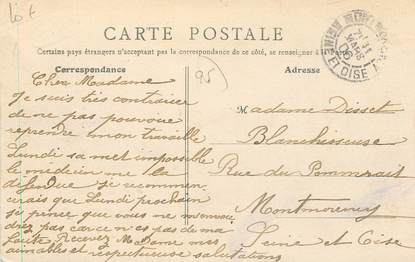 Lot
CARTE POSTALE
Certains pays étrangers n'acceptant pas la correspondance de ce côté, se renseigner à la Poste
Correspondance
Adresse
95
Cher Madame
Je suis très contrair
de ne pas pouvoir
reprendre mon travaille
Lundi sa met impossible
le medecin me la
défendue si recommen
cerais que Lundi prochain
je pense que vous ne
drez pas car ce n'es pas de ma
faute Recevez Madame mes
aimables et respectueuse salutations
Madame Disset
Blanchisseuse
Rue du Pommerait
Montmorency
Seine et Oise
SEINE ET OISE